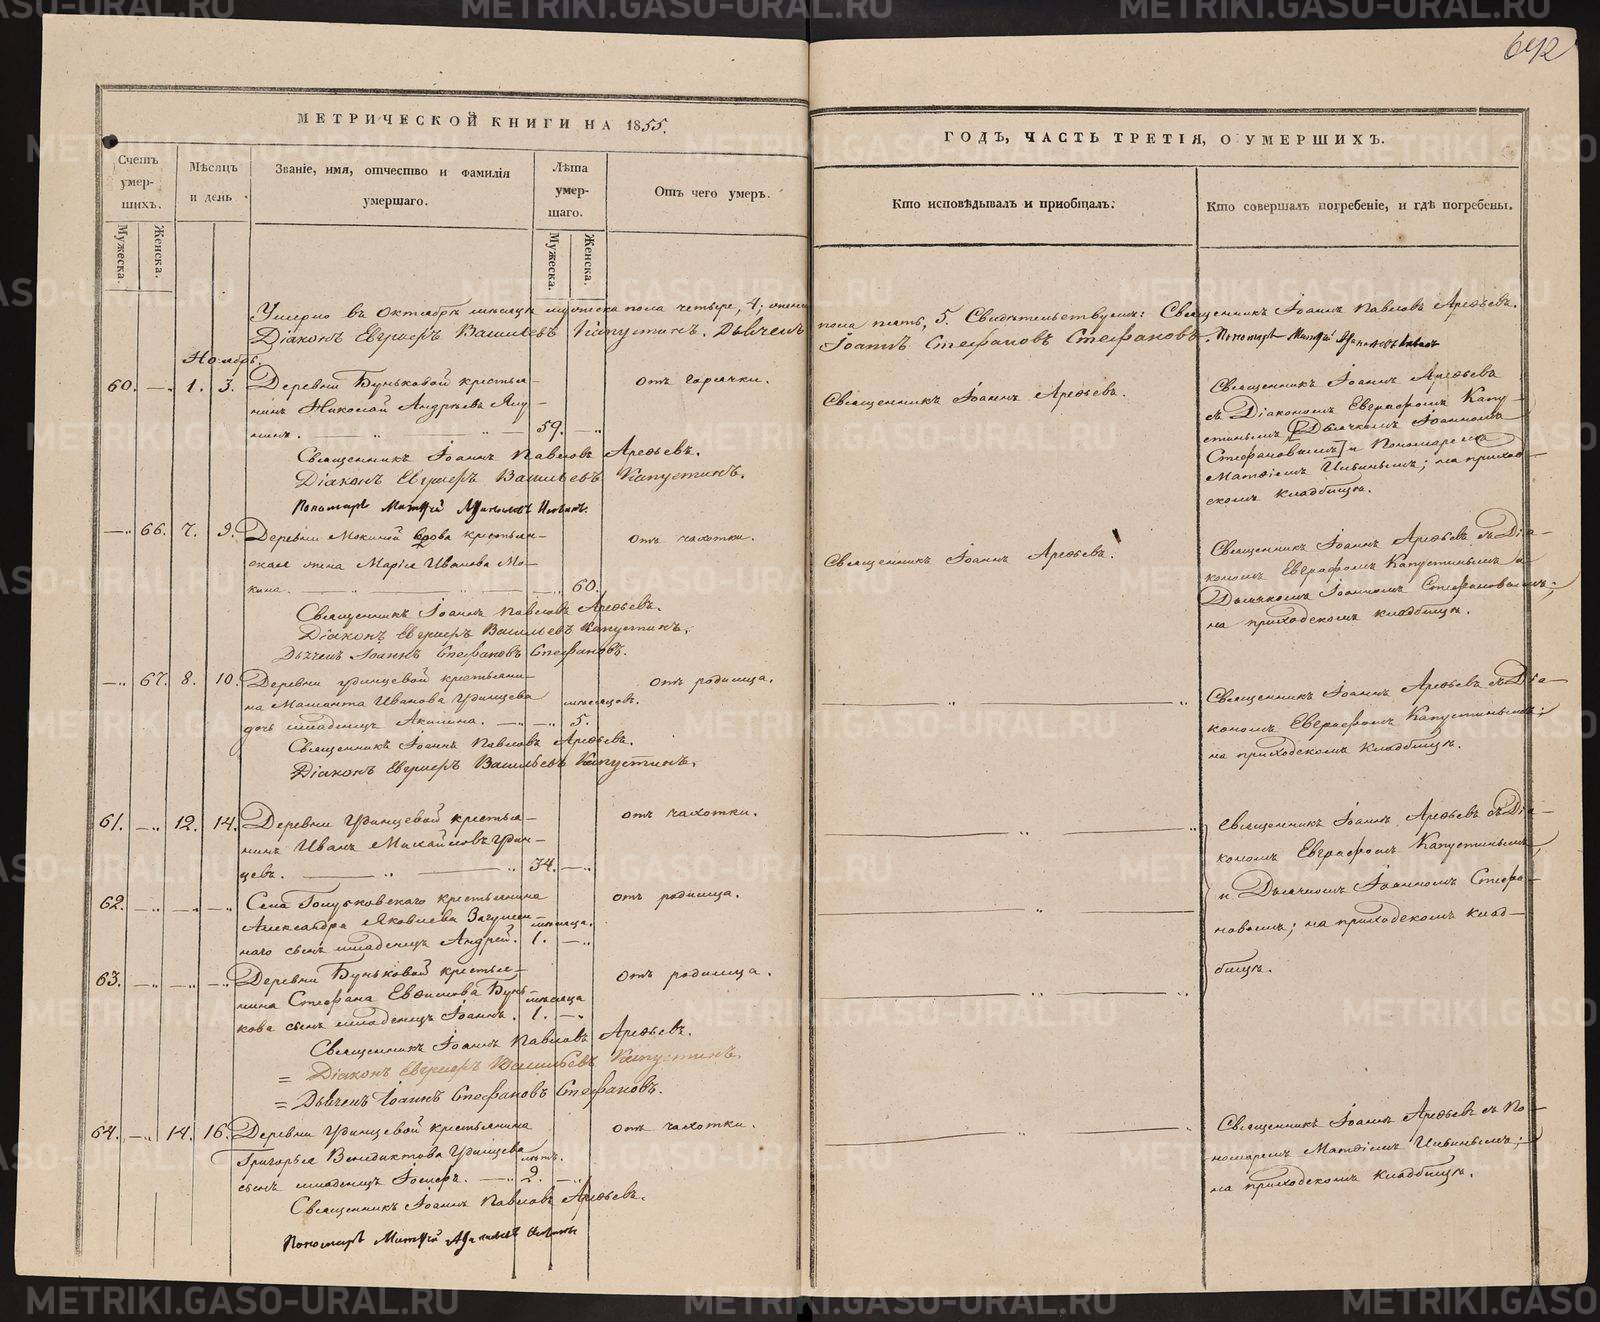 642
МЕТРИЧЕСКОЙ КНИГИ НА 1855.
ГОДЪ, ЧАСТЬ ТРЕТІЯ, О УМЕРШИХЪ.
Счетъ умер-шихъ.
Мѣсяцъ и день
Званіе, имя, отчество и фамилія умершаго.
Лѣта умер-шаго.
Отъ чего умеръ.
Кто исповѣдывалъ и пріобщалъ.
Кто совершалъ погребеніе, и гдѣ погребены.
Мужеска.
Женска.
Мужеска.
Женска.
Умерло въ Октябрѣ мѣсяцѣ мужеска пола четыре, 4; женска
пола пять, 5. Свидѣтельствуемъ: Священникъ Іоаннъ Павловъ Арефьевъ.
Діаконъ Евграфъ Васильевъ Капустинъ. Дьячекъ
Іоаннъ Стефановъ Стефановъ. Пономарь
Ноябрь.
60. 1. 3. Деревни Буньковой крестья-
нинъ Николай Андреевъ
59.
Отъ горячки.
Священникъ Іоаннъ Арефьевъ.
Священникъ Іоаннъ Арефьевъ
съ Діакономъ Евграфомъ Капу-
стинымъ [Дьячкомъ Іоанномъ
Стефановымъ] и Пономаремъ
Матѳіемъ Ильинымъ; на приход-
скомъ кладбищѣ.
Священникъ Іоаннъ Павловъ Арефьевъ.
Діаконъ Евграфъ Васильевъ Капустинъ.
Пономарь
66. 7. 9. Деревни Мокиной вдова крестьян-
ская жена Марія Иванова Мо-
кина. 60.
Отъ чахотки.
Священникъ Іоаннъ Арефьевъ.
Священникъ Іоаннъ Арефьевъ съ Діа-
кономъ Евграфомъ Капустинымъ и
Дьячкомъ Іоанномъ Стефановымъ;
на приходскомъ кладбищѣ.
Священникъ Іоаннъ Павловъ Арефьевъ.
Діаконъ Евграфъ Васильевъ Капустинъ.
Дьячекъ Іоаннъ Стефановъ Стефановъ.
67. 8. 10. Деревни Удинцевой крестьяни-
на Иванова Удинцева
дочь младенецъ Акилина.
мѣсяцовъ.
5.
Отъ родимца.
Священникъ Іоаннъ Арефьевъ съ Діа-
кономъ Евграфомъ Капустинымъ;
на приходскомъ кладбищѣ.
Священникъ Іоаннъ Павловъ Арефьевъ.
Діаконъ Евграфъ Васильевъ Капустинъ.
61. 12. 14. Деревни Удинцевой крестья-
нинъ Иванъ Михайловъ Удин-
цевъ. 34.
Отъ чахотки.
Священникъ Іоаннъ Арефьевъ съ Діа-
кономъ Евграфомъ Капустинымъ,
и Дьячкомъ Іоанномъ Стефа-
новымъ; на приходскомъ клад-
бищѣ.
62. Села крестьянина
Александра Яковлева
сынъ младенецъ Андрей.
мѣсяца.
1.
Отъ родимца.
63. Деревни Буньковой крестья-
нина Стефана Евѳимова Бунь-
кова сынъ младенецъ Іоаннъ.
мѣсяца
1.
Отъ родимца.
Священникъ Іоаннъ Павловъ Арефьевъ.
= Діаконъ Евграфъ Васильевъ Капустинъ.
= Дьячекъ Іоаннъ Стефановъ Стефановъ.
64. 14. 16. Деревни Удинцевой крестьянина
Григорья Венедиктова Удинцева
сынъ младенецъ Іосифъ.
лѣтъ.
2.
Отъ чахотки.
Священникъ Іоаннъ Арефьевъ съ По-
номаремъ Матѳіемъ Ильинымъ;
на приходскомъ кладбищѣ.
Священникъ Іоаннъ Павловъ Арефьевъ.
Пономарь
METRIKI.GASO-URAL.RU